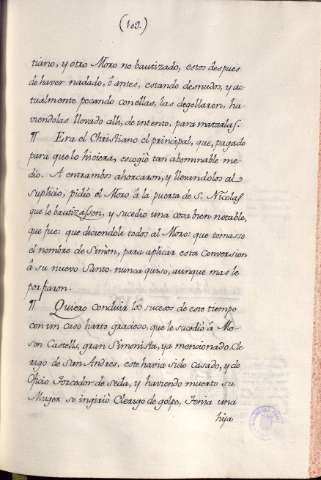 (103.)
tiano, y otro Moro no bautizado, estos despues
de haver nadado, ò antes, estando desnudos, y ac-
tualmente pecando con ellas, las degollaren, ha-
viendolas llevado alli, de intento, para matarlas.
¶ Era el Christiano el principal, que, pagado
para que lo hiciera, escogió tan abominable me-
dio. A entrambos ahorcaron, y llevandolos al
suplicio, pidió el Moro à la puerta de S. Nicolas
que le bautizasson, y sucedio una cosa bien notable,
que fue: que diciendole todos al Moro: que tomasse
el nombre de Simon, para aplicar esta conversion
à su nuevo Santo nunca quiso, aunque mas le
porfiaron.
¶ Quiero concluir los sucesos de este tiempo
con un caso harto gracioso, que le sucedió à Mo-
sen Castells, gran Simonista, ya mencionado. Cle-
rigo de San Andres, este havia sido casado, y de
Oficio Torcedor de seda, y haviendo muerto su
Muger se ingirió Clerigo de golpe, Tenia una
hija